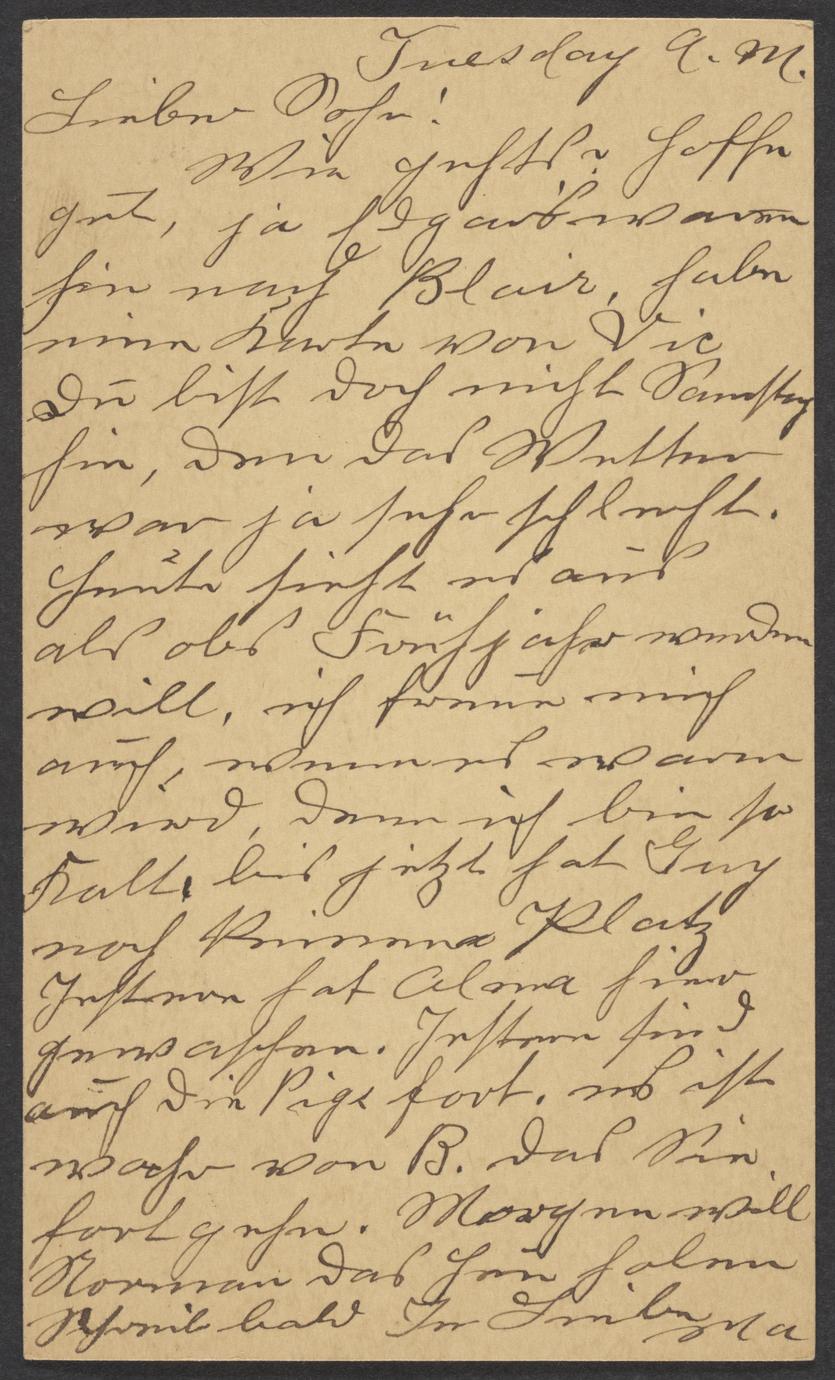 Tuesday A. M.
Lieber Sohn!
Wie gehts? hoffe
gut, ja Edgars waren
hin nach Blair, habe
eine Karte von Vic
Du bist doch nicht Samstag
hin, den das Wetter
war ja sehr schlecht.
Heute sieht es aus
als obs Frühjahr werden
will, ich freue mich
auch, wenn es warm
wird, denn ich bin so
Kalt, bis jetzt hat Guy
noch keinen Platz
Jestern hat Alma hier
gewaschen. Jestern sind
auch die Pigs fort. es ist
wahr von B. das Sie
fort gehn. Morgen will
Norman das Heu holen
Schreib bald In Liebe Ma